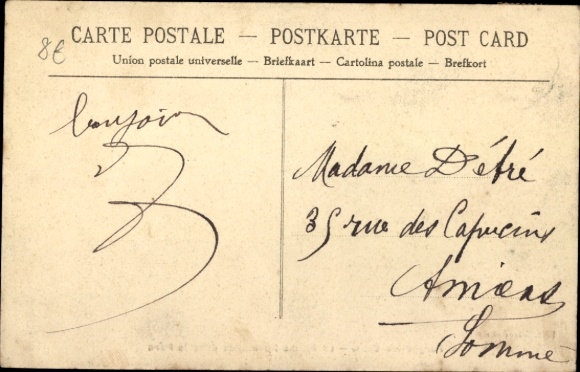 8€
CARTE POSTALE — POSTKARTE — POST CARD
Union postale universelle — Briefkaart — Cartolina postale — Brefkort
bonjour
Madame Détré
35 rue des Capucins
Amiens
Somme